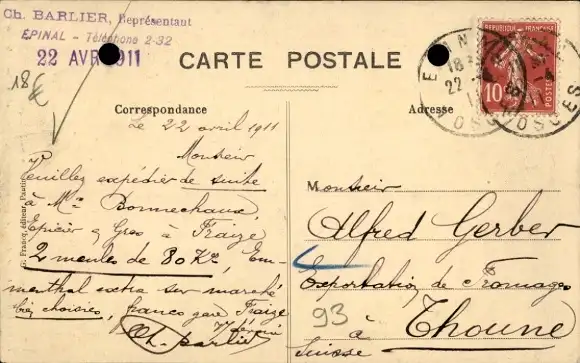 Ch. BARLIER, Représentant
ÉPINAL - Téléphone 2-32
22 AVR 1911
18 €
CARTE POSTALE
REPUBLIQUE FRANÇAISE
10
POSTES
EPINAL
VOSGES
Correspondance
Adresse
Le 22 avril 1911
Monsieur
Veuillez expédier de suite
à Mr Bonnechaux,
Epicier en Gros à Fraize
2 meules de 80 Ks, Em-
menthal extra sur marché
bien choisies, franco gare Fraize
Ch. Barlier
G. Francq, éditeur, Pantin
Monsieur
Alfred Gerber
Exportation de Fromages
93
à
Thoune
Suisse